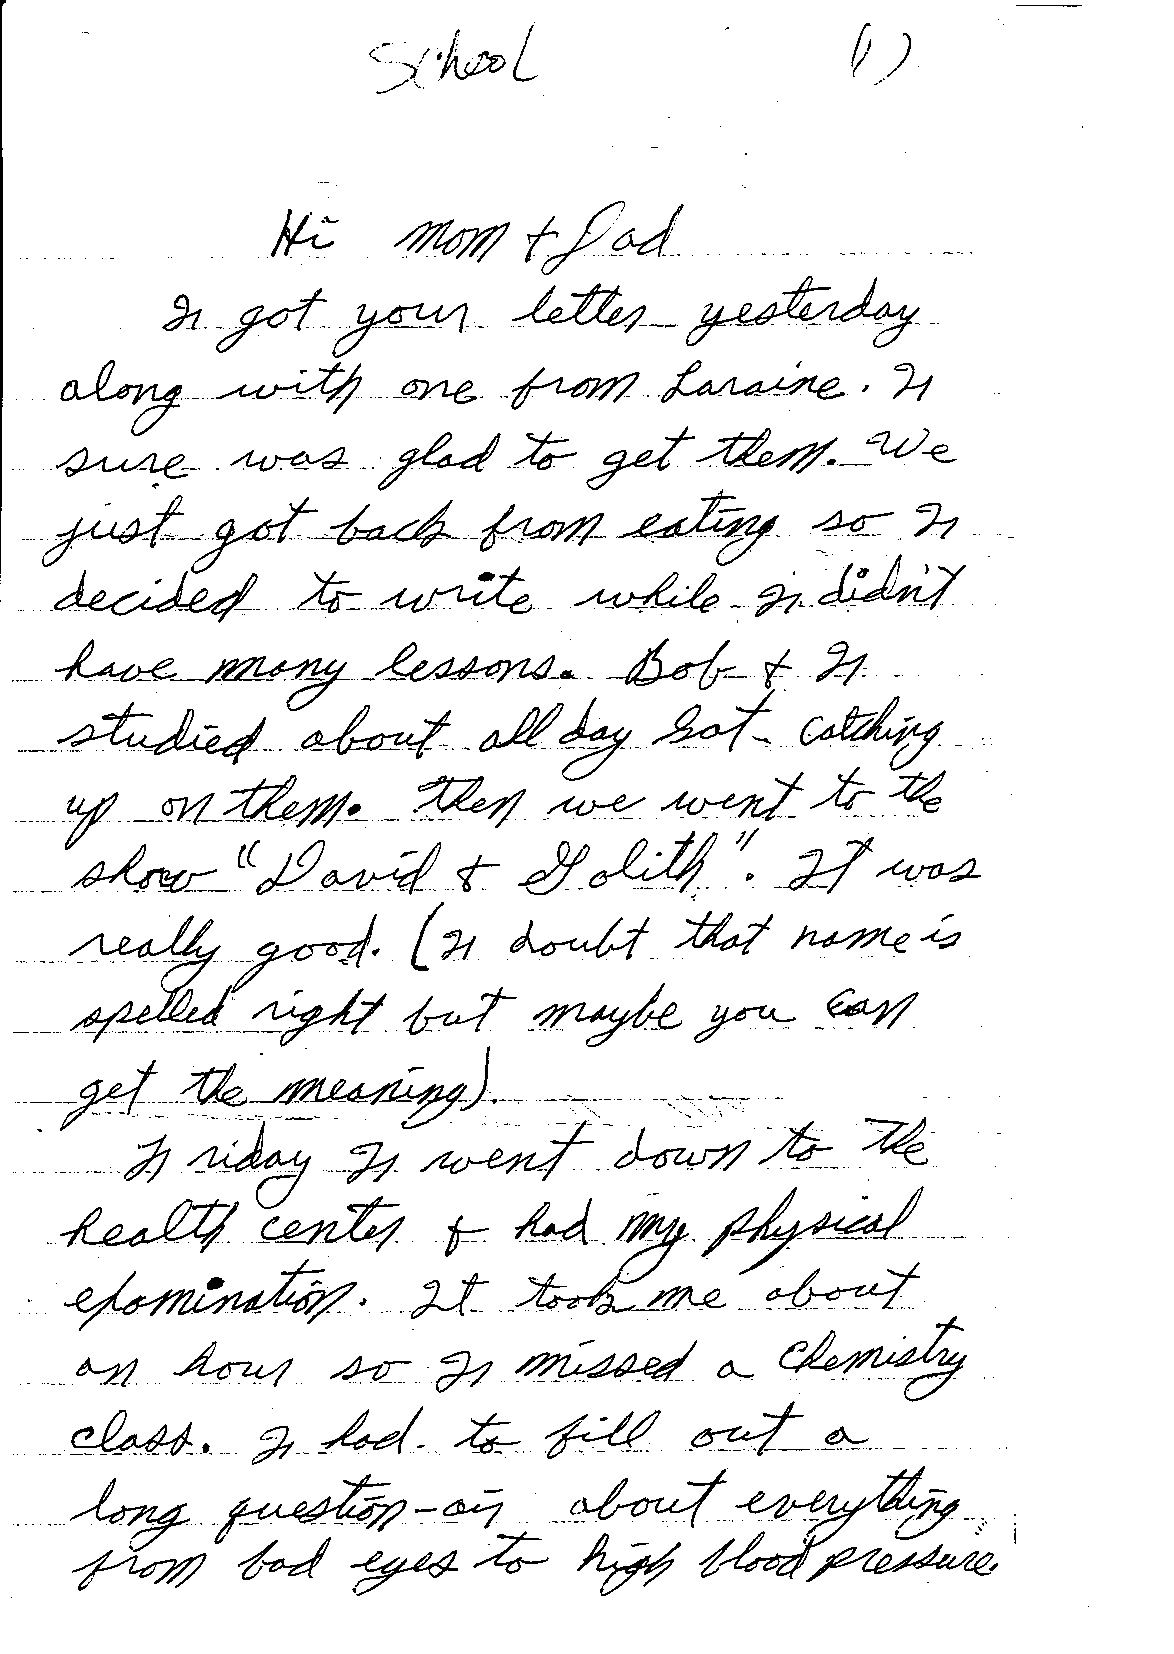 School (1)
Hi Mom + Dad
I got your letter yesterday
along with one from Laraine. I
sure was glad to get them. We
just got back from eating so I
decided to write while I didn't
have many lessons. Bob + I
studied about all day Sat - catching
up on them. Then we went to the
show "David + Golith". It was
really good. (I doubt that name is
spelled right but maybe you can
get the meaning).
Friday I went down to the
health center + had my physical
examination. It took me about
an hour so I missed a chemistry
class. I had to fill out a
long question-air about everything
from bad eyes to high blood pressure.